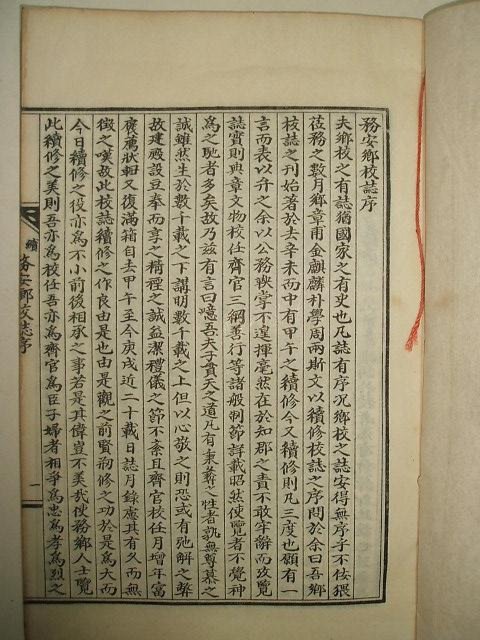 務安鄉校誌序
夫鄉校之有誌猶國家之有史也凡誌有序况鄉校之誌安得無序乎不佞猥
莅務之數月鄉章甫金麒麟朴學周兩斯文以續修校誌之序問於余曰吾鄉
校誌之刊始著於去辛未而中有甲午之續修今又續修則凡三度也願有一
言而表以弁之余以公務鞅掌不遑揮毫然在於知郡之責不敢牢辭而攷覽
誌實則典章文物校任齊官三綱善行等諸般制節詳載昭然使覽者不覺神
爲之馳者多矣故乃玆有言曰噫吾夫子貫天之道凡有秉彝之性者孰無尊慕之
誠雖然生於數千載之下講明數千載之上但以心敬之則恐或有弛解之弊
故建殿設豆奉而享之精禋之誠益潔禮儀之節不紊且齊官校任月增年富
薦狀軸又復滿箱自去甲午至今庚戌近二十載日誌月錄應其有久而無
徵之嘆故此校誌續修之作良由是也由是觀之前賢刱修之功於是爲大而
今日續修之役亦爲不小前後相承之事若是其偉豈不美哉使務鄉人士覽
此續修之美則吾亦爲校任吾亦爲齊官爲臣子婦者相爭爲忠爲孝爲烈之
續 務安鄉校誌序 一